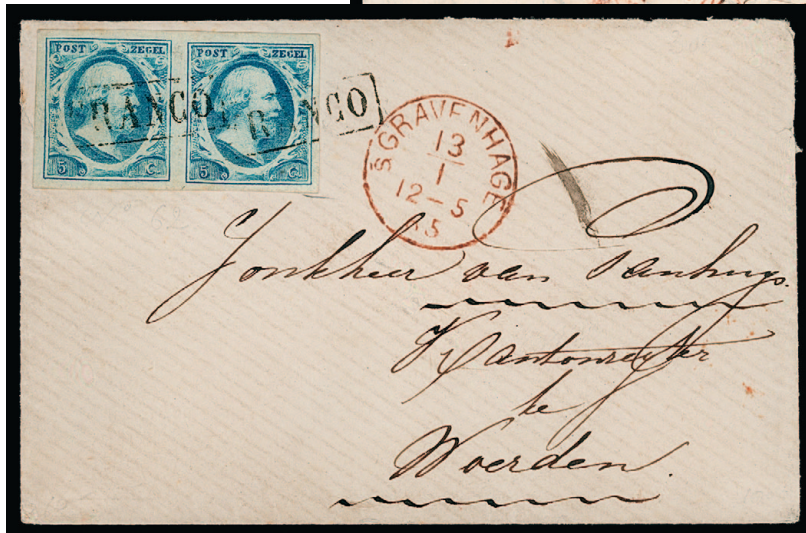 POST ZEGEL POST ZEGEL
FRANCO RANCO
5 C 5 C
S GRAVENHAGE
13
1
12-5
Jonkheer van Panhuys.
Kantonregter
te
Woerden.